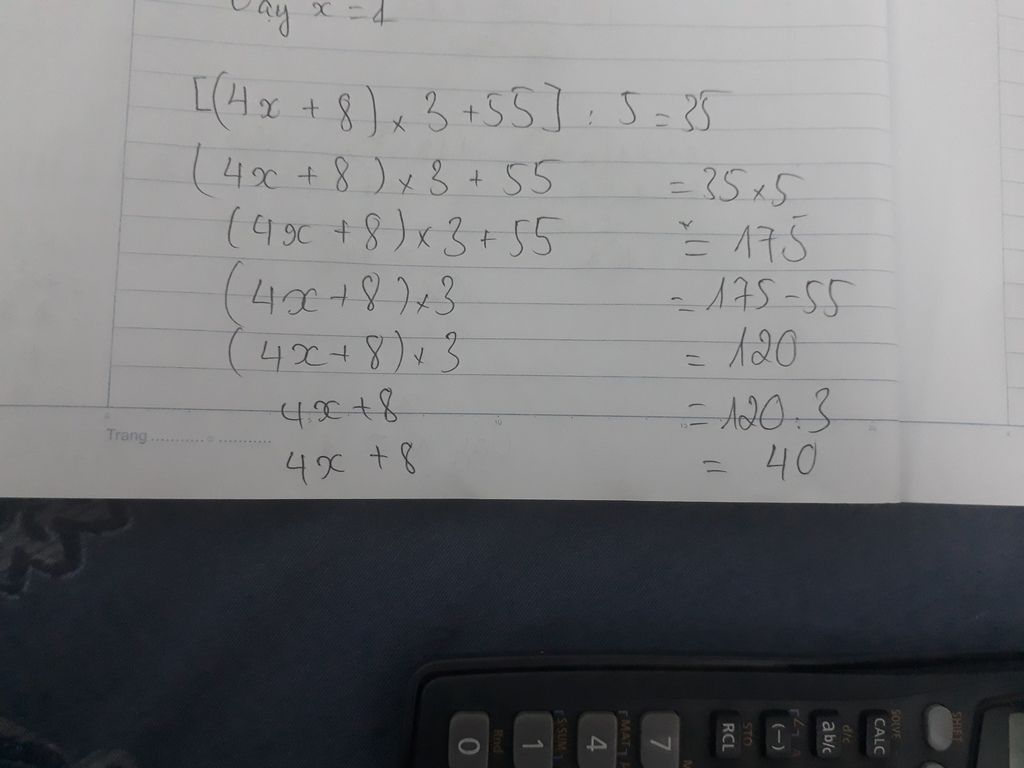 Vậy x = 1
[(4x + 8) x 3 + 55] : 5 = 35
(4x + 8) x 3 + 55 = 35 x 5
(4x + 8) x 3 + 55 = 175
(4x + 8) x 3 = 175 - 55
(4x + 8) x 3 = 120
4x + 8 = 120 : 3
Trang
4x + 8 = 40
SHIFT
SOLVE
CALC
d/c
ab/c
(-)
STO
RCL
7
4
1
0
Rnd